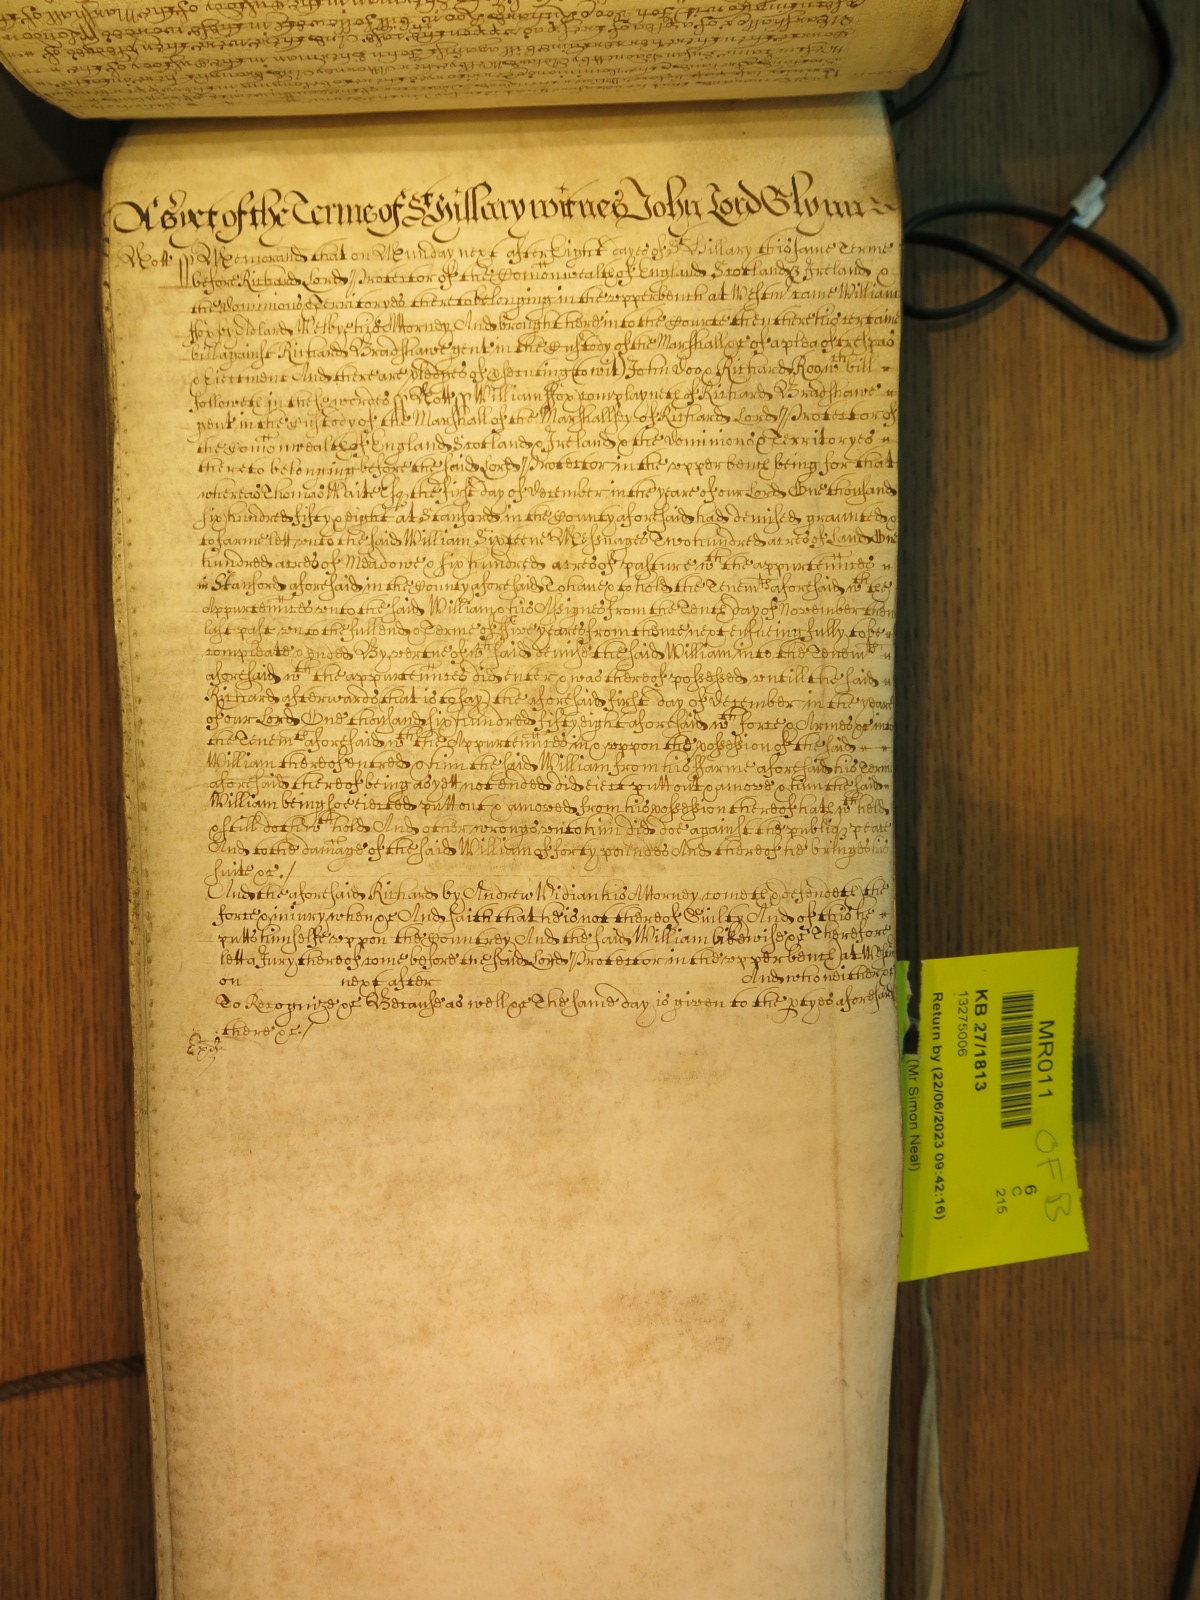 As yet of the Terme of St Hillary witnes John Lord Glynn
Nott ss Memorand that on Munday next after Eight dayes of St Hillary this same Terme
before Richard Lord Protector of the Comonwealth of England Scotland & Ireland &
the Dominions & Territoryes thereto belonging in the upper bench at Westmr came William
ffox by Adlard Melby his Attorney And brought here into the Courte then there his certaine
bill against Richard Bradshawe gent in the Custody of the Marshall &c of a plea of trespas
& Eiectment And there are pledges of p'secuting (to wit) John Doo & Richard Roo wch bill
followeth in these wordes ss Nott ss William ffox complayneth of Richard Bradshawe
gent in the Custody of the Marshall of the Marshallsey of Richard Lord Protector of
the Comonwealth of England Scotland & Ireland & the Dominions & Territoryes
thereto belonging before the said Lord Protector in the upper bench being for that
whereas Thomas Waite Esq the first day of December in the yeare of our Lord One thousand
six hundred fifty & eight at Stanford in the County aforesaid had demised graunted &
to farme lett unto the said William Sixteene Messuages Two hundred acres of Land One
hundred acres of Meadowe & six hundred acres of pasture wth the appurtennces
in Stanford aforesaid in the County aforesaid To have & to hold the Tenemts aforesaid wth the
Appurtennces unto the said William & his Assignes from the Tenth day of November then
last past unto the full end & Terme of ffive yeares from thence next ensueing fully to be
compleate & ended By vertue of wch said demise the said William into the Tenemts
aforesaid wth the appurtennces did enter & was thereof possessed untill the said
Richard afterwards that is to say the aforesaid first day of December in the yeare
of our Lord One thousand six hundred fifty eight aforesaid wth force & Armes &c into
the Tenemts aforesaid wth the Appurtennces in & uppon the possession of the said
William thereof entred & him the said William from his ffarme aforesaid his Terme
aforesaid thereof being as yett not ended did eiect putt out & amove & him the said
William being soe eiected putt out & amoved from his possession thereof hath wthheld
& still doth wthhold And other wrongs unto him did doe against the publiq peace
And to the damage of the said William of forty poundes And thereof he bringes his
suite &c./
And the aforesaid Richard by Andrew Vidian his Attorney cometh & defendeth the
force & iniury when &c And saith that he is not thereof Guilty And of this he
putts himselfe uppon the Countrey And the said William likewise &c Therefore
lett a Jury thereof come before the said Lord Protector in the upper bench at Westmr
on next after And who neither &c
To Recognize &c Because as well &c The same day is given to the ptyes aforesaid
there &c./
MR011
KB 27/1813
13275006
Return by (22/06/2023 09:42:16)
(Mr Simon Neal)
6
C
215
OF B